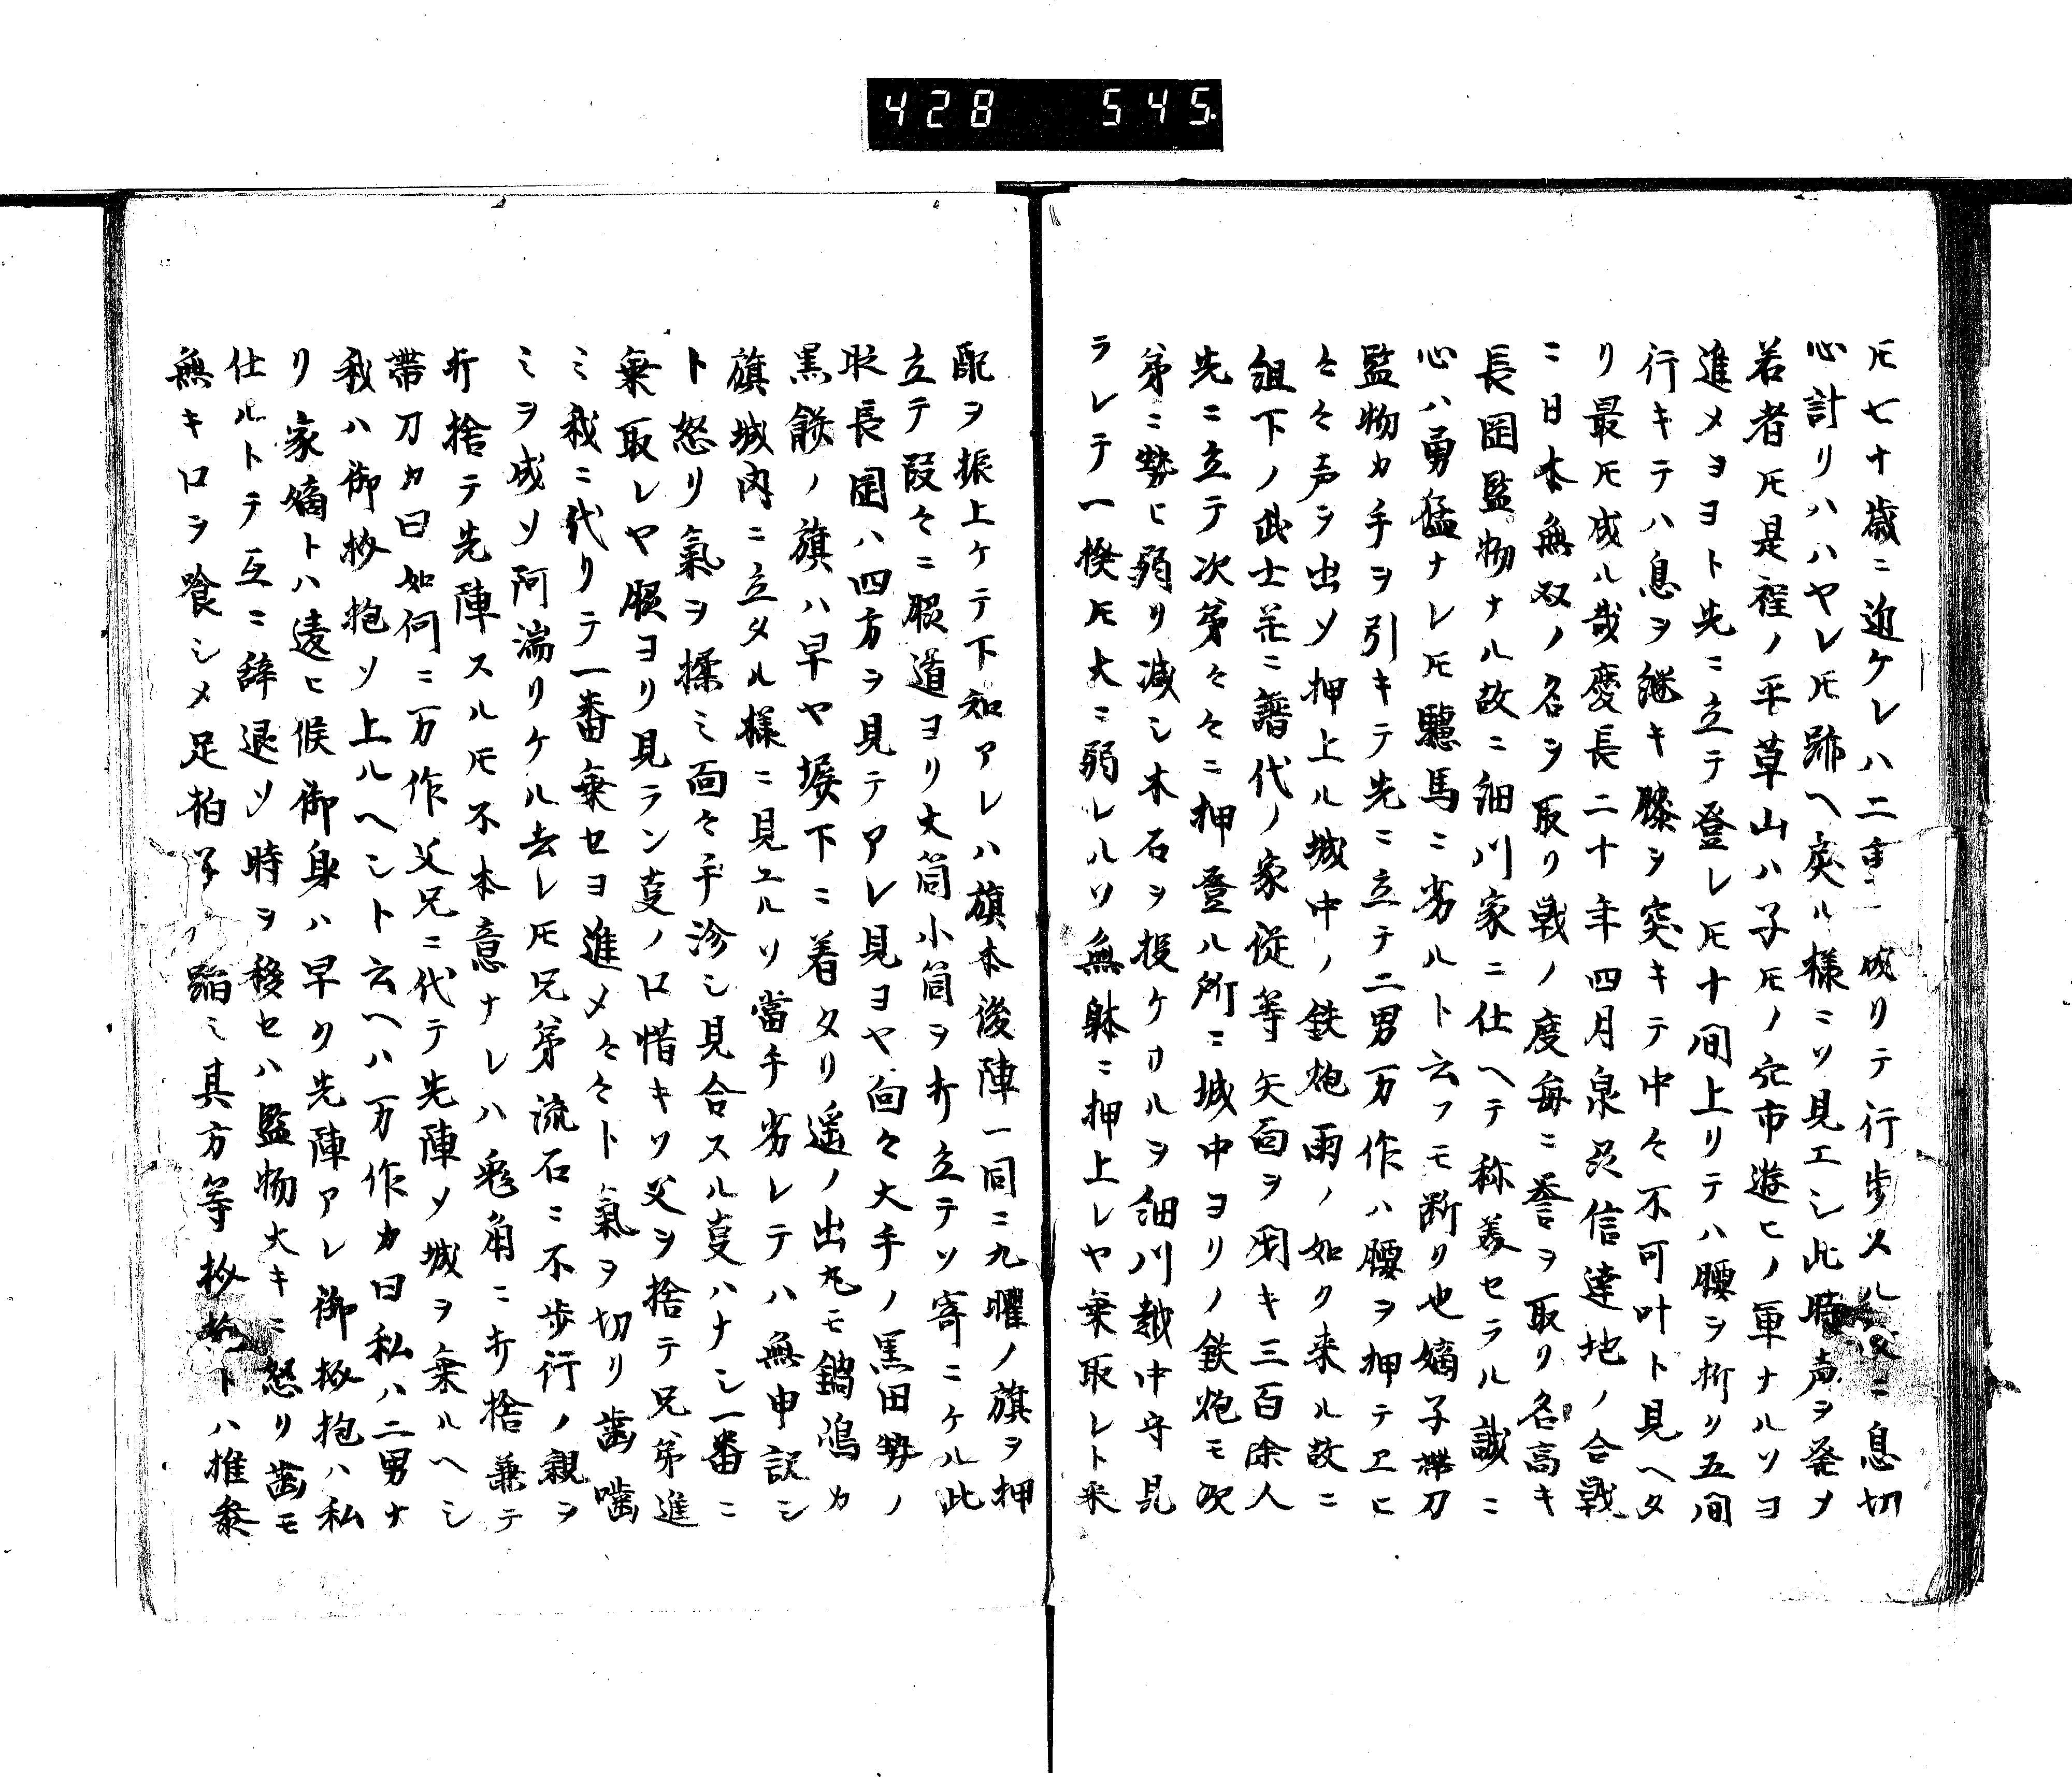 428 545
𪜈七十歳ニ近ケレハ二重ニ成リテ行歩スル度ニ息切
心計リハハヤレ𪜈蹄ヘ戻ル様ニソ見エシ此時声ヲ発メ
若者𪜈是程ノ平草山ハ子𪜈ノ穴市遊ヒノ軍ナルソヨ
進メヨヨト先ニ立テ登レ𪜈十間上リテハ腰ヲ折リ五間
行キテハ息ヲ継キ膝ヲ突キテ中々不可叶ト見ヘタ
リ最𪜈成ル哉慶長二十年四月泉州信達地ノ合戦
ニ日本無双ノ名ヲ取リ戦ノ度毎ニ誉ヲ取リ名高キ
長岡監物ナル故ニ細川家ニ仕ヘテ称美セラル誠ニ
心ハ勇猛ナレ𪜈驢馬ニ劣ルト云フモ断リ也嫡子帯刀
監物カ手ヲ引キテ先ニ立テ二男万作ハ腰ヲ押テヱヒ
々々声ヲ出ソ押上ル城中ノ鉄炮雨ノ如ク来ル故ニ
組下ノ武士并ニ譜代ノ家従等矢面ヲ開キ三百余人
先ニ立テ次第々々ニ押登ル所ニ城中ヨリノ鉄炮モ次
第ニ勢ヒ弱リ減シ木石ヲ投ケケルヲ細川越中守見
ラレテ一揆𪜈大ニ弱レルソ無躰ニ押上レヤ乗取レト釆
配ヲ振上ケテ下知アレハ旗本後陣一同ニ九曜ノ旗ヲ押
立テ段々ニ脇道ヨリ大筒小筒ヲ打立テソ寄ニケル此
時長岡ハ四方ヲ見テアレ見ヨヤ向々大手ノ黒田勢ノ
黒餅ノ旗ハ早ヤ塀下ニ着タリ遥ノ出丸モ鍋嶋カ
旗城内ニ立タル様ニ見エルソ當手劣レテハ無申訳シ
ト怒リ氣ヲ揉ミ面々手汾シ見合スル事ハナシ一番ニ
乗取レヤ脇ヨリ見ラン事ノ口惜キソ父ヲ捨テ兄弟進
ミ我ニ代リテ一番乗セヨ進メ々々ト氣ヲ切リ歯噛
ミヲ成ソ阿湍リケル去レ𪜈兄弟流石ニ不歩行ノ親ヲ
打捨テ先陣スル𪜈不本意ナレハ兎角ニ打捨兼テ
帯刀カ曰如何ニ万作父兄ニ代テ先陣ソ城ヲ乗ルヘシ
我ハ御抄抱ソ上ルヘシト云ヘハ万作カ曰私ハ二男ナ
リ家嫡トハ違ヒ候御身ハ早ク先陣アレ御抄抱ハ私
仕ルトテ互ニ辞退ソ時ヲ移セハ監物大キニ怒リ歯モ
無キ口ヲ喰シメ足拍子踏ミ其方等抄抱トハ推参